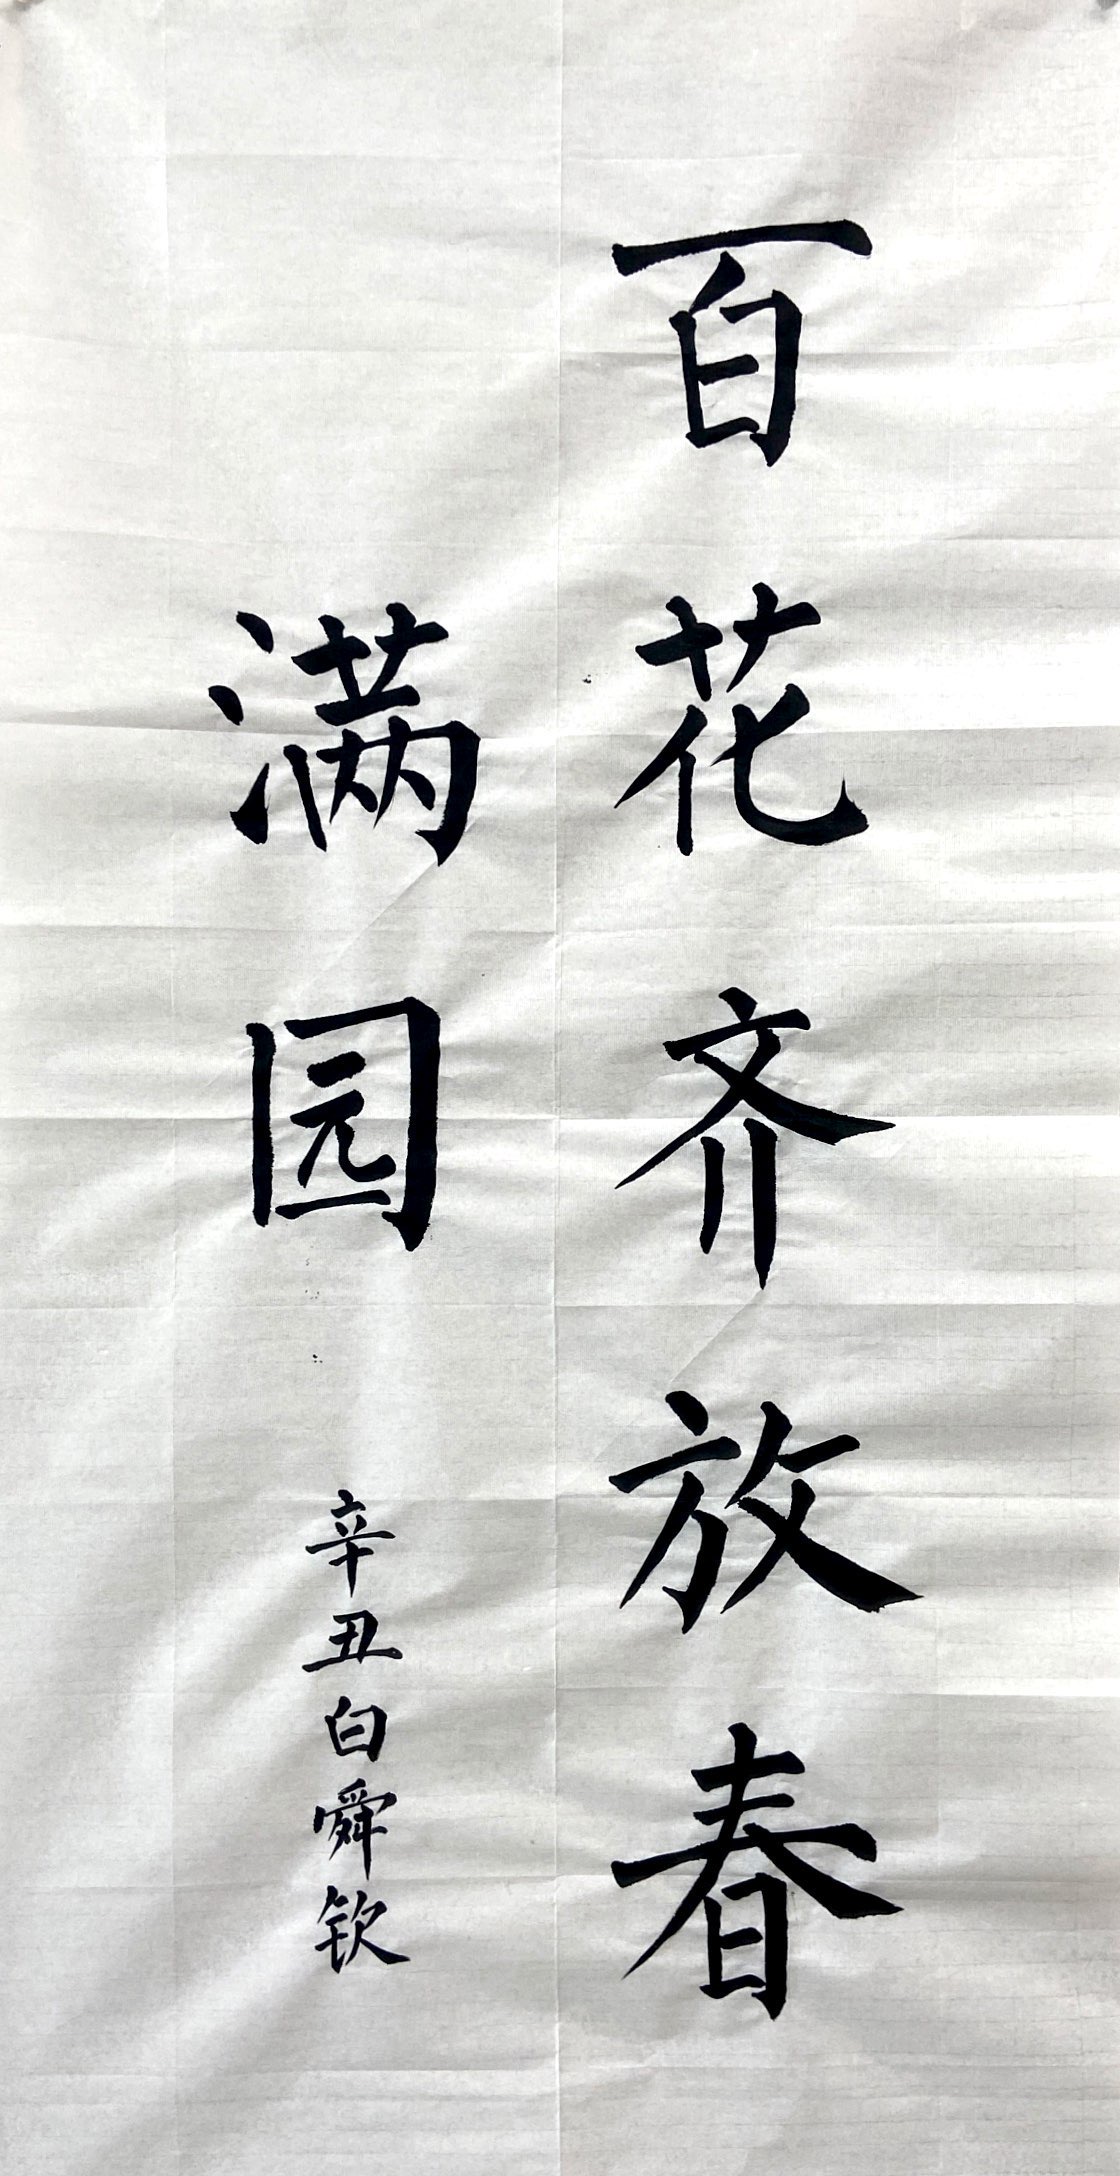 百花齐放春
满园
辛丑白舜钦